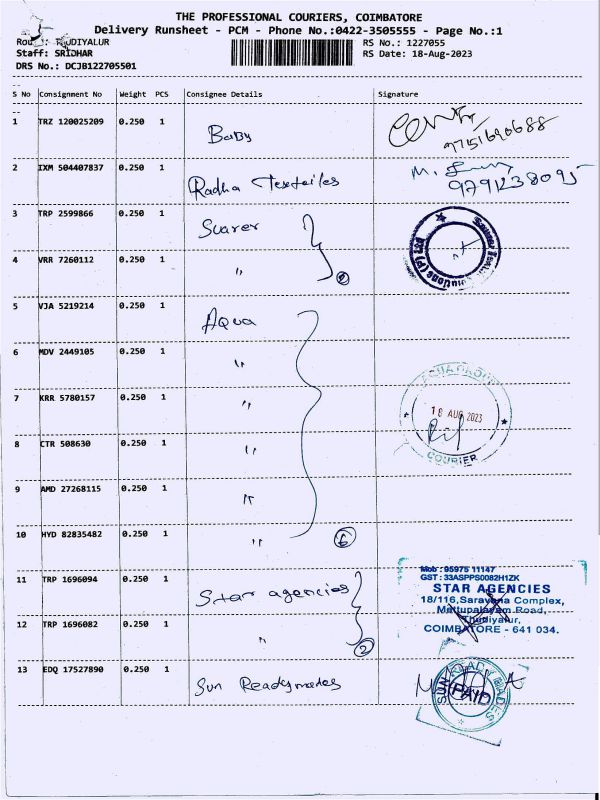 THE PROFESSIONAL COURIERS, COIMBATORE
Delivery Runsheet - PCM - Phone No.:0422-3505555 - Page No.:1
RS No.: 1227055
Staff: SRIDHAR RS Date: 18-Aug-2023
DRS No.: DCJB122705501
S No Consignment No Weight PCS Consignee Details Signature
1 TRZ 120025209 0.250 1 Baby 9751690688
2 IXM 504407837 0.250 1 Radha Texteiles M. 9791238095
3 TRP 2599866 0.250 1
4 VRR 7260112 0.250 1 "
5 VJA 5219214 0.250 1 Aqua
6 MDV 2449105 0.250 1 "
7 KRR 5780157 0.250 1 "
18 AUG 2023
8 CTR 508630 0.250 1 "
COURIER
9 AMD 27268115 0.250 1 "
10 HYD 82835482 0.250 1 " 6
Mob : 95975 11147
GST : 33ASPPS0082H1ZK
11 TRP 1696094 0.250 1 Star agencies
STAR AGENCIES
18/116, Saravana Complex,
Mettupalayam Road,
12 TRP 1696082 0.250 1 " 2
Thudiyalur,
COIMBATORE - 641 034.
13 EDQ 17527890 0.250 1 Sun Readymades
SUN READY MADES
PAID